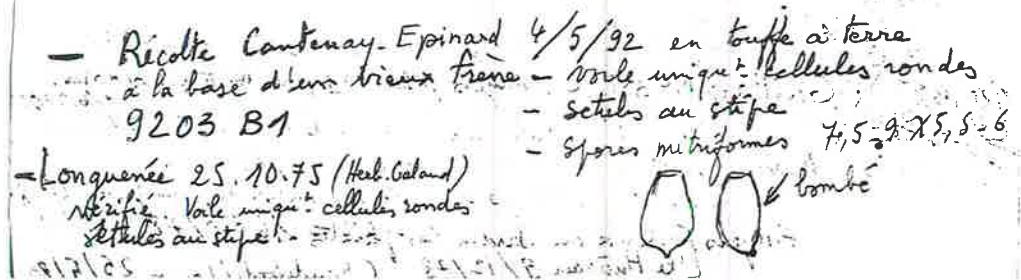 — Récolte Cantenay-Epinard 4/5/92 en touffe à terre
à la base d'un vieux frêne – voile uniqut cellules rondes
9203 B1
– setules au stipe
– Spores mitriformes 7,5-9 X 5,5-6
bombé
– Longuenée 25.10.75 (Herb. Galand)
vérifié. Voile uniqut cellules rondes
setules au stipe